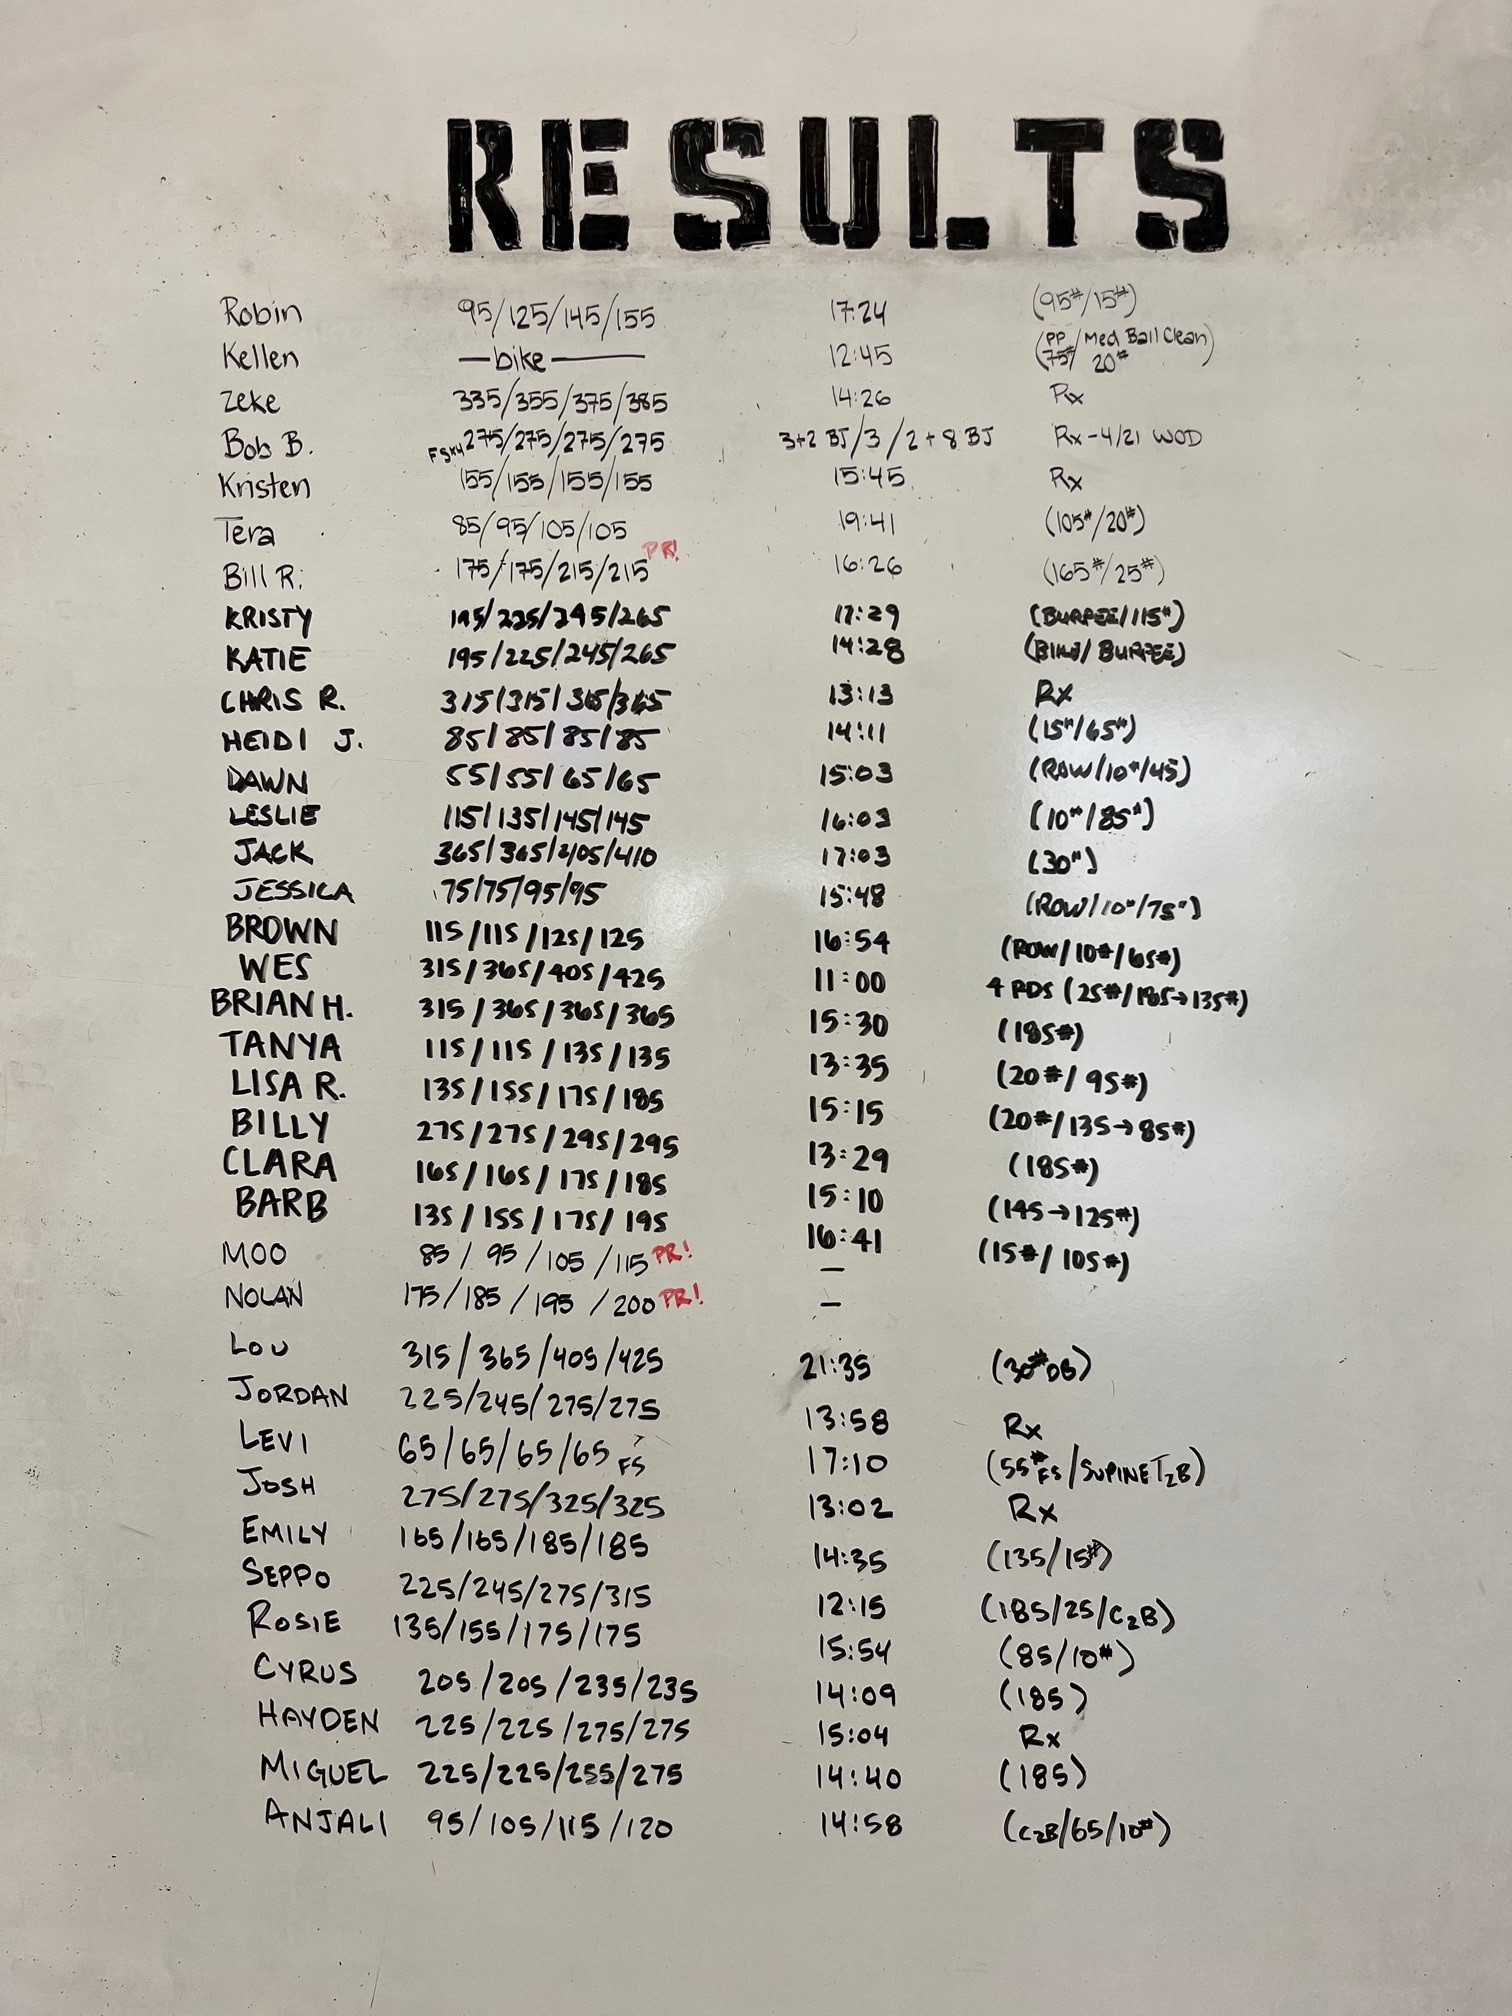 RESULTS
Robin 95/125/145/155 17:24 (95#/15#)
Kellen —bike— 12:45 (PP 75#/Med Ball Clean 20#)
Zeke 335/355/375/385 14:26 Rx
Bob B. FSx4 275/275/275/275 3+2 BJ/3/2+8 BJ Rx-4/21 WOD
Kristen 155/155/155/155 15:45 Rx
Tera 85/95/105/105 19:41 (105#/20#)
Bill R. 175/175/215/215 PR! 16:26 (165#/25#)
KRISTY 195/225/245/265 17:29 (BURPEE/115#)
KATIE 195/225/245/265 14:28 (BIKE/BURPEE)
CHRIS R. 315/315/365/365 13:13 Rx
HEIDI J. 85/85/85/85 14:11 (15#/65#)
DAWN 55/55/65/65 15:03 (ROW/10#/45)
LESLIE 115/135/145/145 16:03 (10#/85#)
JACK 365/365/405/410 17:03 (30#)
JESSICA 75/75/95/95 15:48 (ROW/10#/75#)
BROWN 115/115/125/125 16:54 (ROW/10#/65#)
WES 315/365/405/425 11:00 4 RDS (25#/185→135#)
BRIAN H. 315/365/365/365 15:30 (185#)
TANYA 115/115/135/135 13:35 (20#/95#)
LISA R. 135/155/175/185 15:15 (20#/135→85#)
BILLY 275/275/295/295 13:29 (185#)
CLARA 165/165/175/185 15:10 (145→125#)
BARB 135/155/175/195 16:41 (15#/105#)
MOO 85/95/105/115 PR! —
NOLAN 175/185/195/200 PR! —
LOU 315/365/405/425 21:35 (30# DB)
JORDAN 225/245/275/275 13:58 Rx
LEVI 65/65/65/65 FS 17:10 (55# FS/SUPINE T2B)
JOSH 275/275/325/325 13:02 Rx
EMILY 165/165/185/185 14:35 (135/15#)
SEPPO 225/245/275/315 12:15 (185/25/C2B)
ROSIE 135/155/175/175 15:54 (85/10#)
CYRUS 205/205/235/235 14:09 (185)
HAYDEN 225/225/275/275 15:04 Rx
MIGUEL 225/225/255/275 14:40 (185)
ANJALI 95/105/115/120 14:58 (C2B/65/10#)